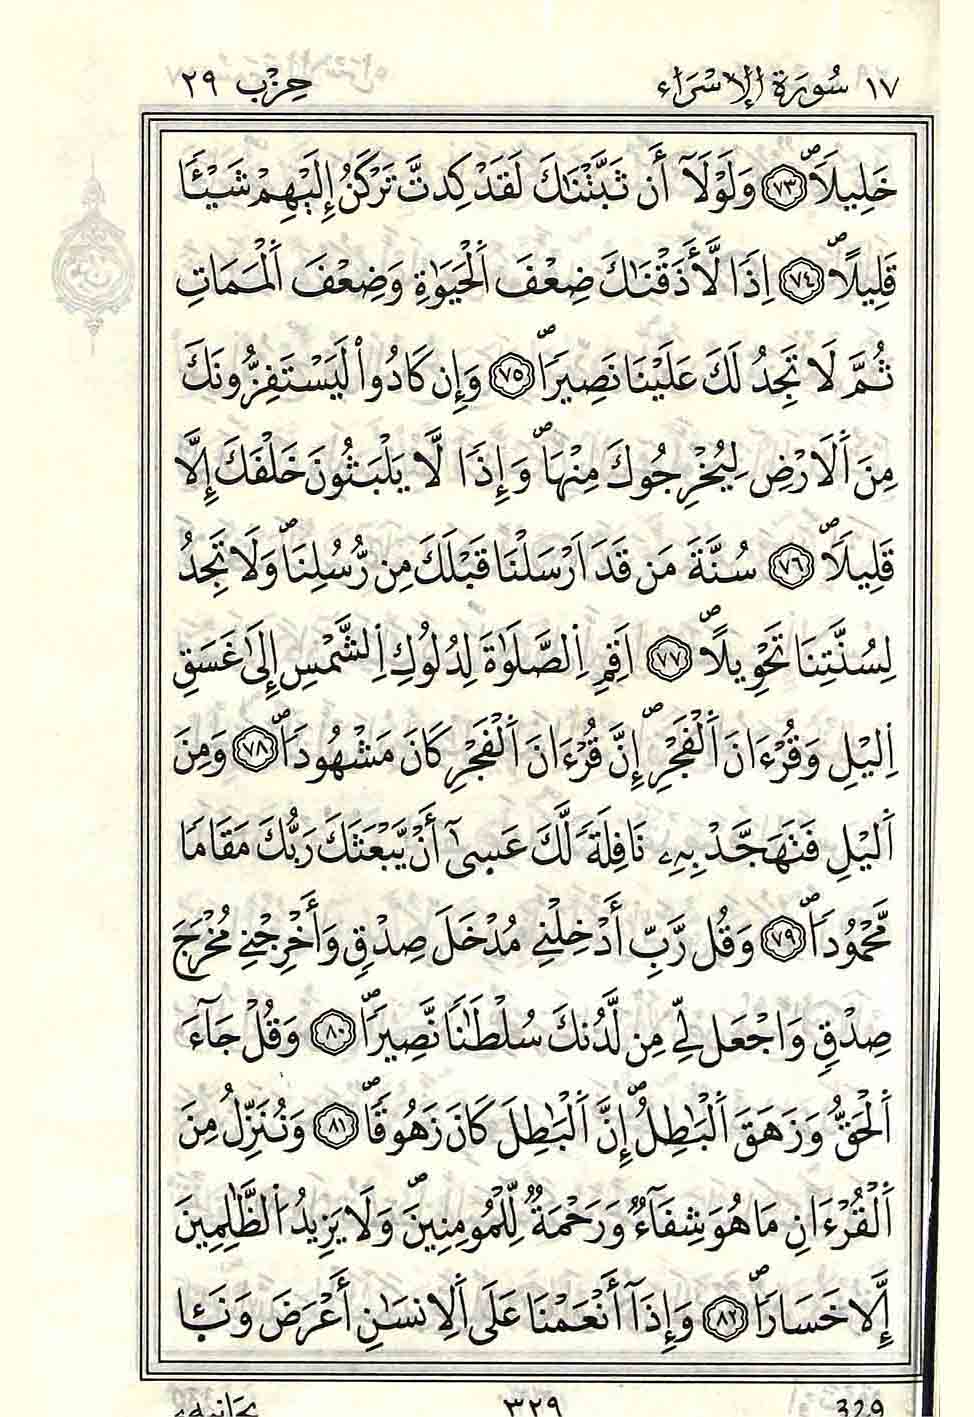 ١٧ سُورَةُ الإِسْرَاء حِزْب ٢٩
خَلِيلاً ٧٣ وَلَوْلَآ أَن ثَبَّتْنَٰكَ لَقَدْ كِدتَّ تَرْكَنُ إِلَيْهِمْ شَيْـًٔا
قَلِيلاً ٧٤ اِذاً لَّأَذَقْنَٰكَ ضِعْفَ اَلْحَيَوٰةِ وَضِعْفَ اَلْمَمَاتِ
ثُمَّ لَا تَجِدُ لَكَ عَلَيْنَا نَصِيراً ٧٥ وَإِن كَادُواْ لَيَسْتَفِزُّونَكَ
مِنَ اَلَارْضِ لِيُخْرِجُوكَ مِنْهَا وَإِذاً لَّا يَلْبَثُونَ خَلْفَكَ إِلَّا
قَلِيلاً ٧٦ سُنَّةَ مَن قَدَ اَرْسَلْنَا قَبْلَكَ مِن رُّسُلِنَا وَلَا تَجِدُ
لِسُنَّتِنَا تَحْوِيلاً ٧٧ اَقِمِ اِلصَّلَوٰةَ لِدُلُوكِ اِلشَّمْسِ إِلَىٰ غَسَقِ
اِليْلِ وَقُرْءَانَ اَلْفَجْرِ إِنَّ قُرْءَانَ اَلْفَجْرِ كَانَ مَشْهُوداً ٧٨ وَمِنَ
اَليْلِ فَتَهَجَّدْ بِهِۦ نَافِلَةً لَّكَ عَسىٰٓ أَنْ يَّبْعَثَكَ رَبُّكَ مَقَاماً
مَّحْمُوداً ٧٩ وَقُل رَّبِّ أَدْخِلْنِي مُدْخَلَ صِدْقٍ وَأَخْرِجْنِي مُخْرَجَ
صِدْقٍ وَاجْعَل لِّي مِن لَّدُنكَ سُلْطَٰناً نَّصِيراً ٨٠ وَقُلْ جَآءَ
اَلْحَقُّ وَزَهَقَ اَلْبَٰطِلُ إِنَّ اَلْبَٰطِلَ كَانَ زَهُوقاً ٨١ وَنُنَزِّلُ مِنَ
اَلْقُرْءَانِ مَا هُوَ شِفَآءٌ وَرَحْمَةٌ لِّلْمُومِنِينَ وَلَا يَزِيدُ اُلظَّٰلِمِينَ
إِلَّا خَسَاراً ٨٢ وَإِذَآ أَنْعَمْنَا عَلَى اَلِانسَٰنِ أَعْرَضَ وَنَـَٔا
329 ٣٢٩ بِجَانِبِهِۦ